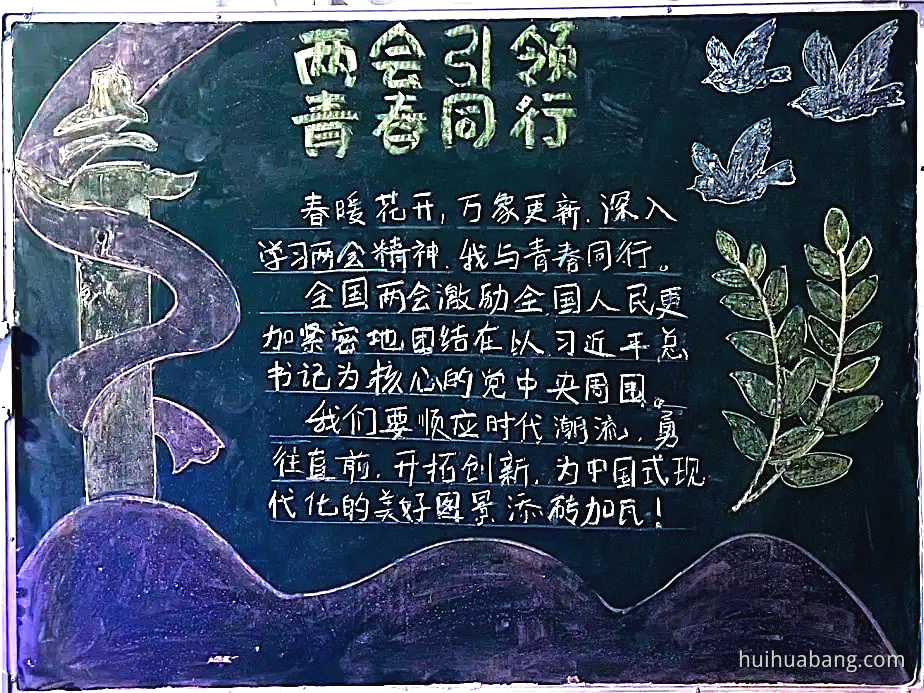 两会引领
青春同行
春暖花开,万象更新.深入
学习两会精神.我与青春同行。
全国两会激励全国人民更
加紧密地团结在以习近平总
书记为核心的党中央周围。
我们要顺应时代潮流,勇
往直前.开拓创新.为中国式现
代化的美好图景添砖加瓦!
huihuabang.com